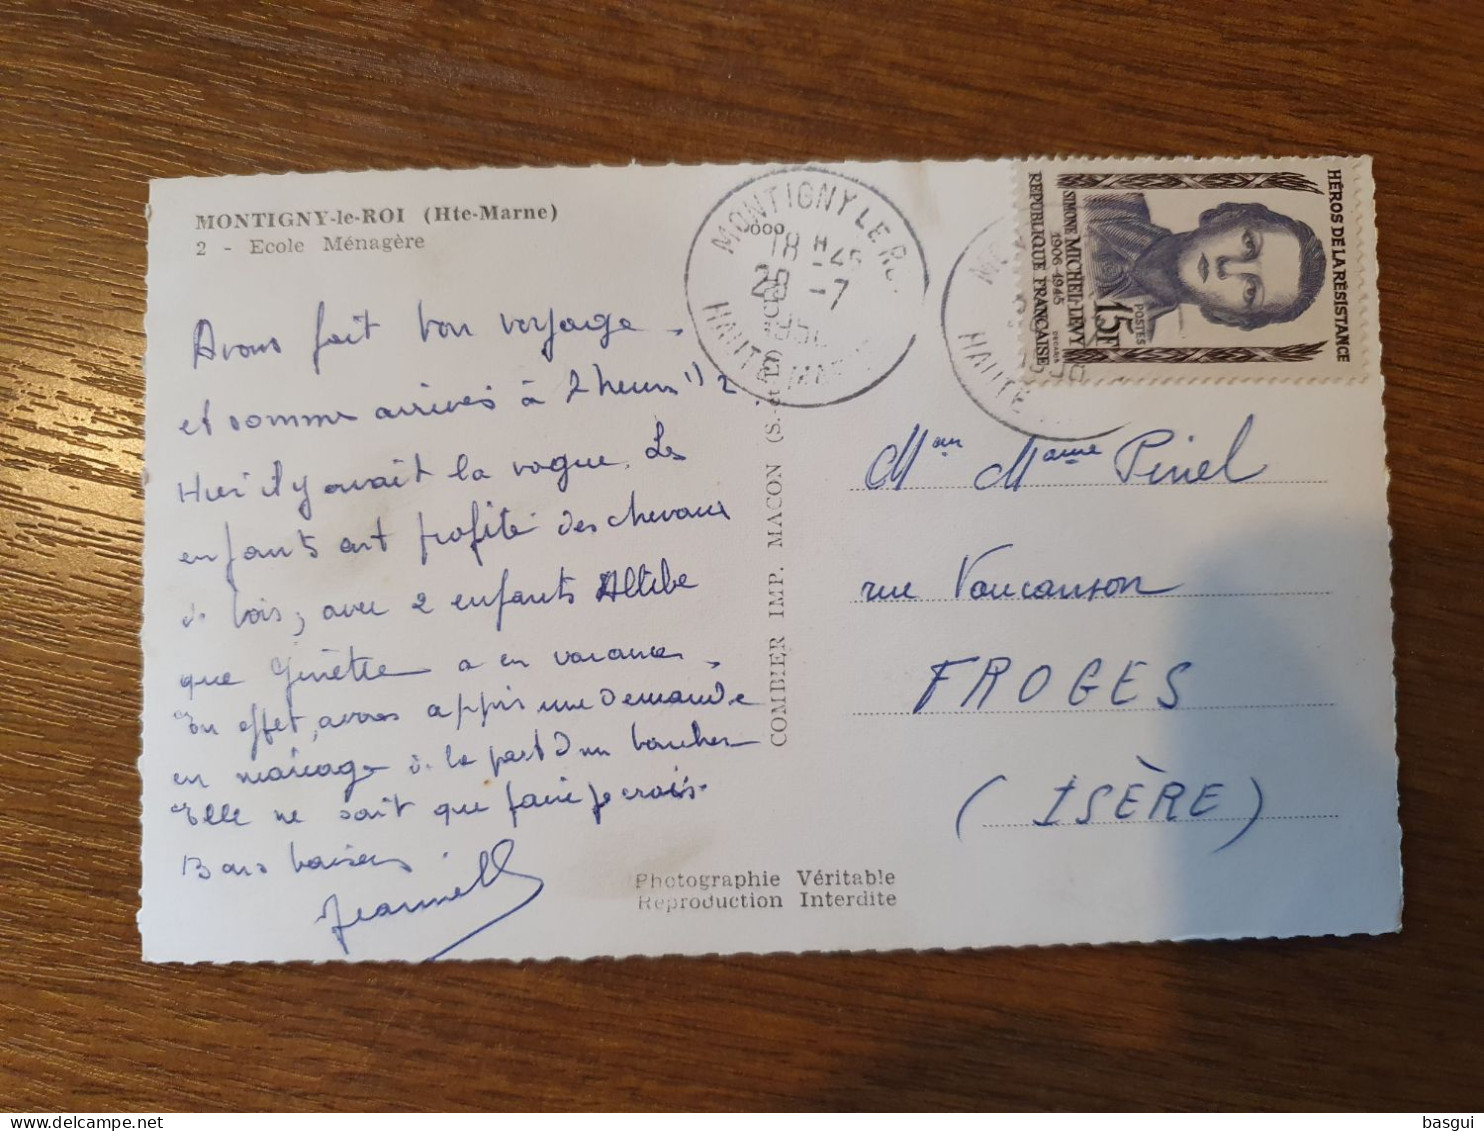 MONTIGNY-le-ROI (Hte-Marne)
2 - Ecole Ménagère
Avons fait bon voyage.
et somme arrivés à 2 heures 1/2.
Hier il y avait la vogue. Les
enfants ont profité des chevaux
de bois, avec 2 enfants
que Ginette a en vacances.
En effet, avons appris une demande
en mariage de la part d'un boucher
Elle ne sait que faire je crois.
Bons baisers
Photographie Véritable
Reproduction Interdite
COMBIER IMP. MACON (S.-et-L.)
MONTIGNY LE R
18 H 45
-7
HAUTE MARNE
HAUTE
HÉROS DE LA RÉSISTANCE
POSTES
15F
SIMONE MICHEL-LEVY
1906-1945
REPUBLIQUE FRANÇAISE
Pinel
rue Vaucanson
FROGES
(ISÈRE)
basgui